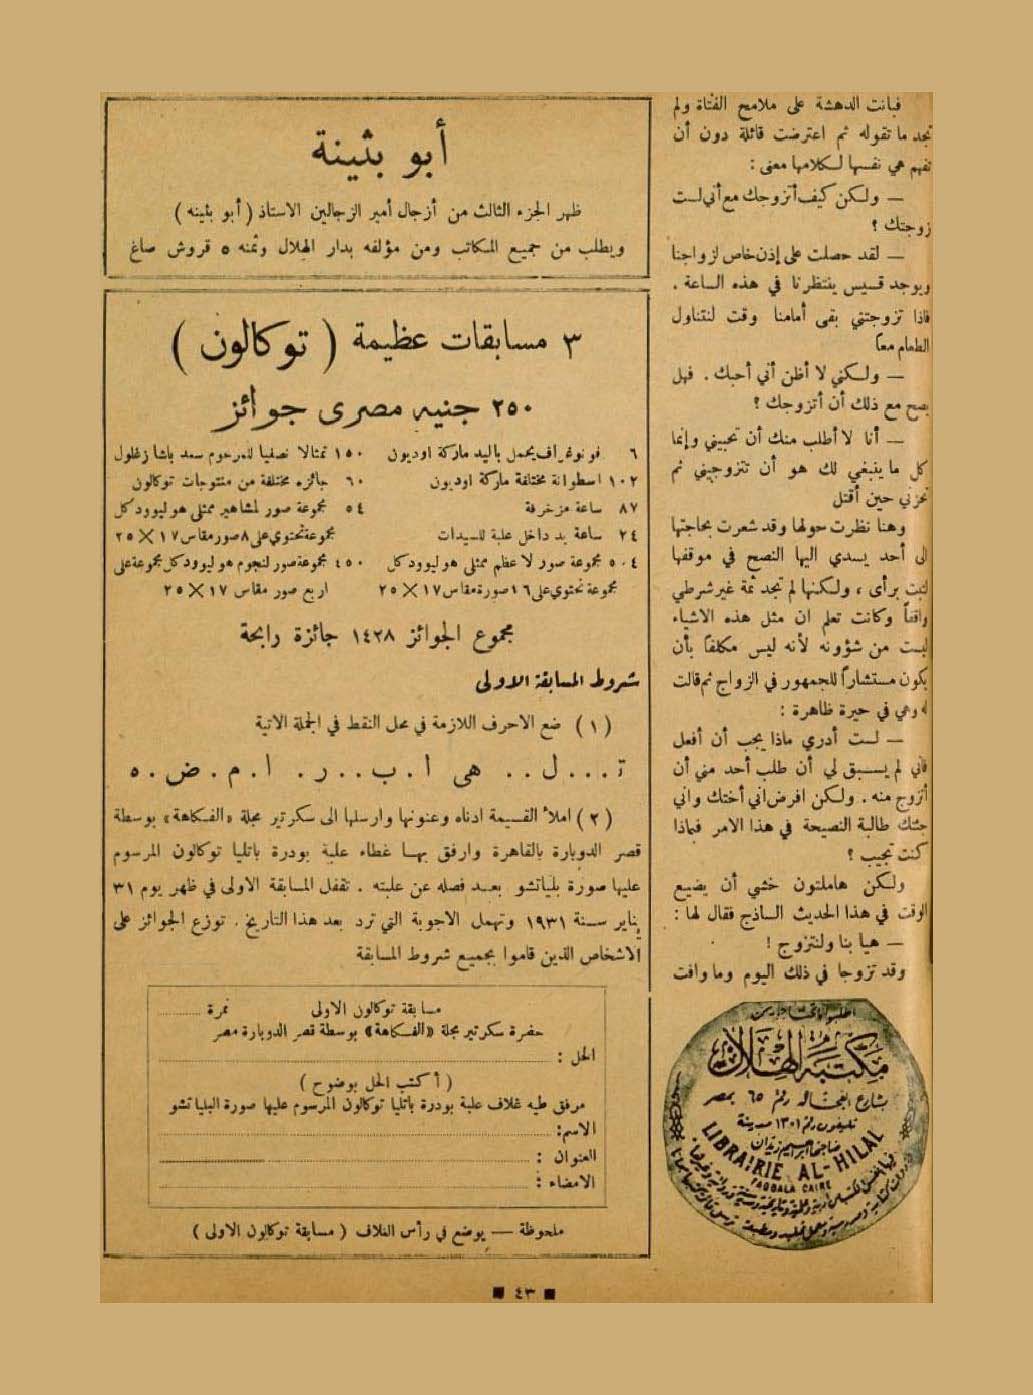 فبانت الدهشة على ملامح الفتاة ولم
تجد ما تقوله ثم اعترضت قائلة دون أن
تفهم هي نفسها لكلامها معنى :
— ولكن كيف أتزوجك مع أني لست
زوجتك ؟
— لقد حصلت على إذن خاص لزواجنا
ويوجد قسيس ينتظرنا في هذه الساعة .
فاذا تزوجتني بقى أمامنا وقت لنتناول
الطعام معاً
— ولكني لا أظن أني أحبك . فهل
يصح مع ذلك أن أتزوجك ؟
— أنا لا أطلب منك أن تحبيني وإنما
كل ما ينبغي لك هو أن تتزوجيني ثم
تحزني حين أقتل
وهنا نظرت حولها وقد شعرت بحاجتها
الى أحد يسدي اليها النصح في موقفها
لتبت برأى ، ولكنها لم تجد ثمة غير شرطي
واقفاً وكانت تعلم ان مثل هذه الاشياء
ليست من شؤونه لأنه ليس مكلفاً بأن
يكون مستشاراً للجمهور في الزواج ثم قالت
له وهي في حيرة ظاهرة :
— لست أدري ماذا يجب أن أفعل
فاني لم يسبق لي أن طلب أحد مني أن
أتزوج منه . ولكن افرض اني أختك واني
جئتك طالبة النصيحة في هذا الامر فماذا
كنت تجيب ؟
ولكن هاملتون خشي أن يضيع
الوقت في هذا الحديث الساذج فقال لها :
— هيا بنا ولنتزوج !
وقد تزوجا في ذلك اليوم وما وافت
مكتبة الهلال
بشارع الفجالة رقم ٦٥ بمصر
تليفون رقم ١٣٠١ مدينة
صاحبها ابراهيم زيدان
LIBRAIRIE AL-HILAL
FAGGALA CAIRE
أبو بثينة
ظهر الجزء الثالث من أزجال أمير الزجالين الاستاذ ( أبو بثينه )
ويطلب من جميع المكاتب ومن مؤلفه بدار الهلال وثمنه ٥ قروش صاغ
٣ مسابقات عظيمة ( توكالون )
٢٥٠ جنيه مصرى جوائز
٦ فونوغراف يحمل باليد ماركة اوديون
١٠٢ اسطوانة مختلفة ماركة اوديون
٨٧ ساعة مزخرفة
٢٤ ساعة يد داخل علبة للسيدات
٥٠٤ مجموعة صور لاعظم ممثلى هوليوود كل
مجموعة تحتوي على ١٦ صورة مقاس ١٧ × ٢٥
١٥٠ تمثالا نصفيا للمرحوم سعد باشا زغلول
٦٠ جائزه مختلفة من منتوجات توكالون
٥٤ مجموعة صور لمشاهير ممثلى هوليوود كل
مجموعة تحتوي على ٨ صور مقاس ١٧ × ٢٥
٤٥٠ مجموعة صور لنجوم هوليوود كل مجموعة على
اربع صور مقاس ١٧ × ٢٥
مجموع الجوائز ١٤٢٨ جائزة رابحة
شروط المسابقة الاولى
( ١ ) ضع الاحرف اللازمة في محل النقط في الجملة الاتية
ت . . . ل . . هى ا . ب . . ر . ا . م . ض . ه
( ٢ ) املأ القسيمة ادناه وعنونها وارسلها الى سكرتير مجلة «الفكاهة» بوسطة
قصر الدوبارة بالقاهرة وارفق بها غطاء علبة بودرة باتليا توكالون المرسوم
عليها صورة بلياتشو بعد فصله عن علبته . تقفل المسابقة الاولى في ظهر يوم ٣١
يناير سنة ١٩٣١ وتهمل الاجوبة التي ترد بعد هذا التاريخ . توزع الجوائز على
الاشخاص الذين قاموا بجميع شروط المسابقة
مسابقة توكالون الاولى نمرة ..........
حضرة سكرتير مجلة «الفكاهة» بوسطة قصر الدوبارة مصر
الحل : ..........
( أكتب الحل بوضوح )
مرفق طيه غلاف علبة بودرة باتليا توكالون المرسوم عليها صورة البلياتشو
الاسم: ..........
العنوان : ..........
الامضاء : ..........
ملحوظة — يوضع في رأس الغلاف ( مسابقة توكالون الاولى )
■ ٤٣ ■